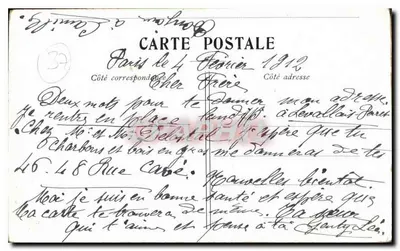 Bonjour à Camille
CARTE POSTALE
Paris le 4 Février 1912
Côté correspondance
Côté adresse
Cher Frère
Deux mots pour te donner mon adresse
je rentre en place lundi à Levallois Perret
Chez Mr et Me
J'espère que tu
Charbons et bois en gros me donneras de tes
46-48 Rue Cavé.
Nouvelles bientôt.
Moi je suis en bonne santé et espère que
Ma carte te trouvera de même. Ta sœur
qui t'aime et pense à toi